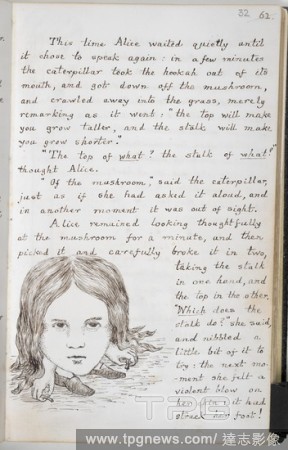 32 62.
This time Alice waited quietly until
it chose to speak again: in a few minutes
the caterpillar took the hookah out of its
mouth, and got down off the mushroom,
and crawled away into the grass, merely
remarking as it went: "the top will make
you grow taller, and the stalk will make
you grow shorter."
"The top of what? the stalk of what?"
thought Alice.
"Of the mushroom," said the caterpillar,
just as if she had asked it aloud, and
in another moment it was out of sight.
Alice remained looking thoughtfully
at the mushroom for a minute, and then
picked it and carefully broke it in two,
taking the stalk
in one hand, and
the top in the other.
"Which does the
stalk do?" she said,
and nibbled a
little bit of it to
try: the next mo-
ment she felt a
violent blow on
her chin: it had
struck her foot!
TPG
www.tpgnews.com/達志影像